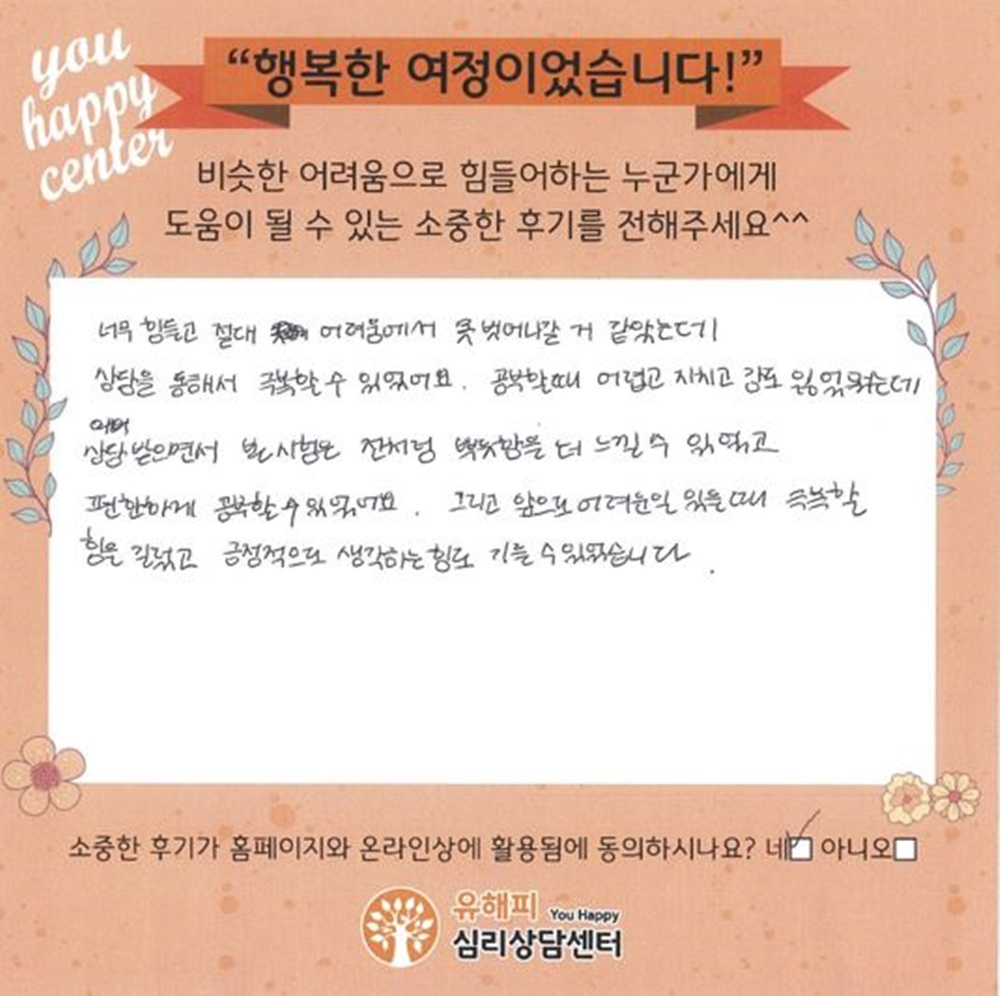 you
happy
center
“행복한 여정이었습니다!”
비슷한 어려움으로 힘들어하는 누군가에게
도움이 될 수 있는 소중한 후기를 전해주세요^^
너무 힘들고 절대 어려움에서 못 벗어나갈 거 같았는데
상담을 통해서 극복할 수 있었어요. 공부할때 어렵고 지치고 감도
상담 받으면서 본 시험은 전처럼 뿌듯함을 더 느낄 수 있었고
편안하게 공부할 수 있었어요. 그리고 앞으로 어려운일 있을때 극복할
힘을 길렀고 긍정적으로 생각하는 힘도 기를 수 있었습니다.
소중한 후기가 홈페이지와 온라인상에 활용됨에 동의하시나요? 네 아니오
유해피 You Happy
심리상담센터